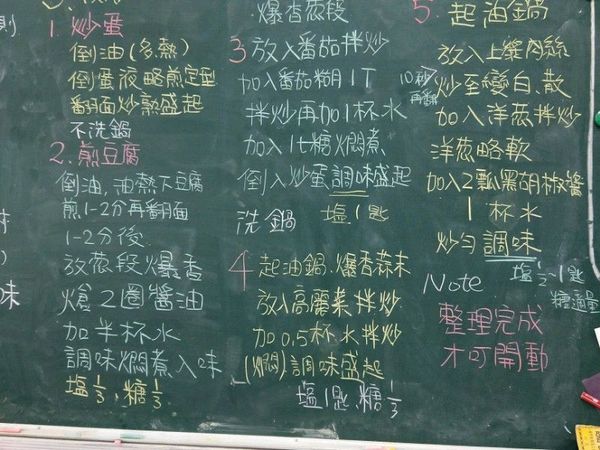 1. 炒蛋
倒油(多熱)
倒蛋液略煎定型
翻面炒熟盛起
不洗鍋
2. 煎豆腐
倒油,油熱下豆腐
煎1-2分再翻面
1-2分後
放蔥段爆香
熗2圈醬油
加半杯水
調味燜煮入味
塩⅓、糖⅓
爆香蔥段
3 放入番茄拌炒
加入番茄糊1T
拌炒再加1杯水
加入1t糖燜煮
倒入炒蛋調味盛起
塩1匙
洗鍋
4 起油鍋、爆香蒜末
放入高麗菜拌炒
加0.5杯水拌炒
(燜)調味盛起
塩1匙、糖⅓
5. 起油鍋
放入上漿肉絲
10秒再翻
炒至變白、散
加入洋蔥拌炒
洋蔥略軟
加入2瓢黑胡椒醬
1杯水
炒勻調味
塩½~1匙
糖適量
Note
整理完成
才可開動